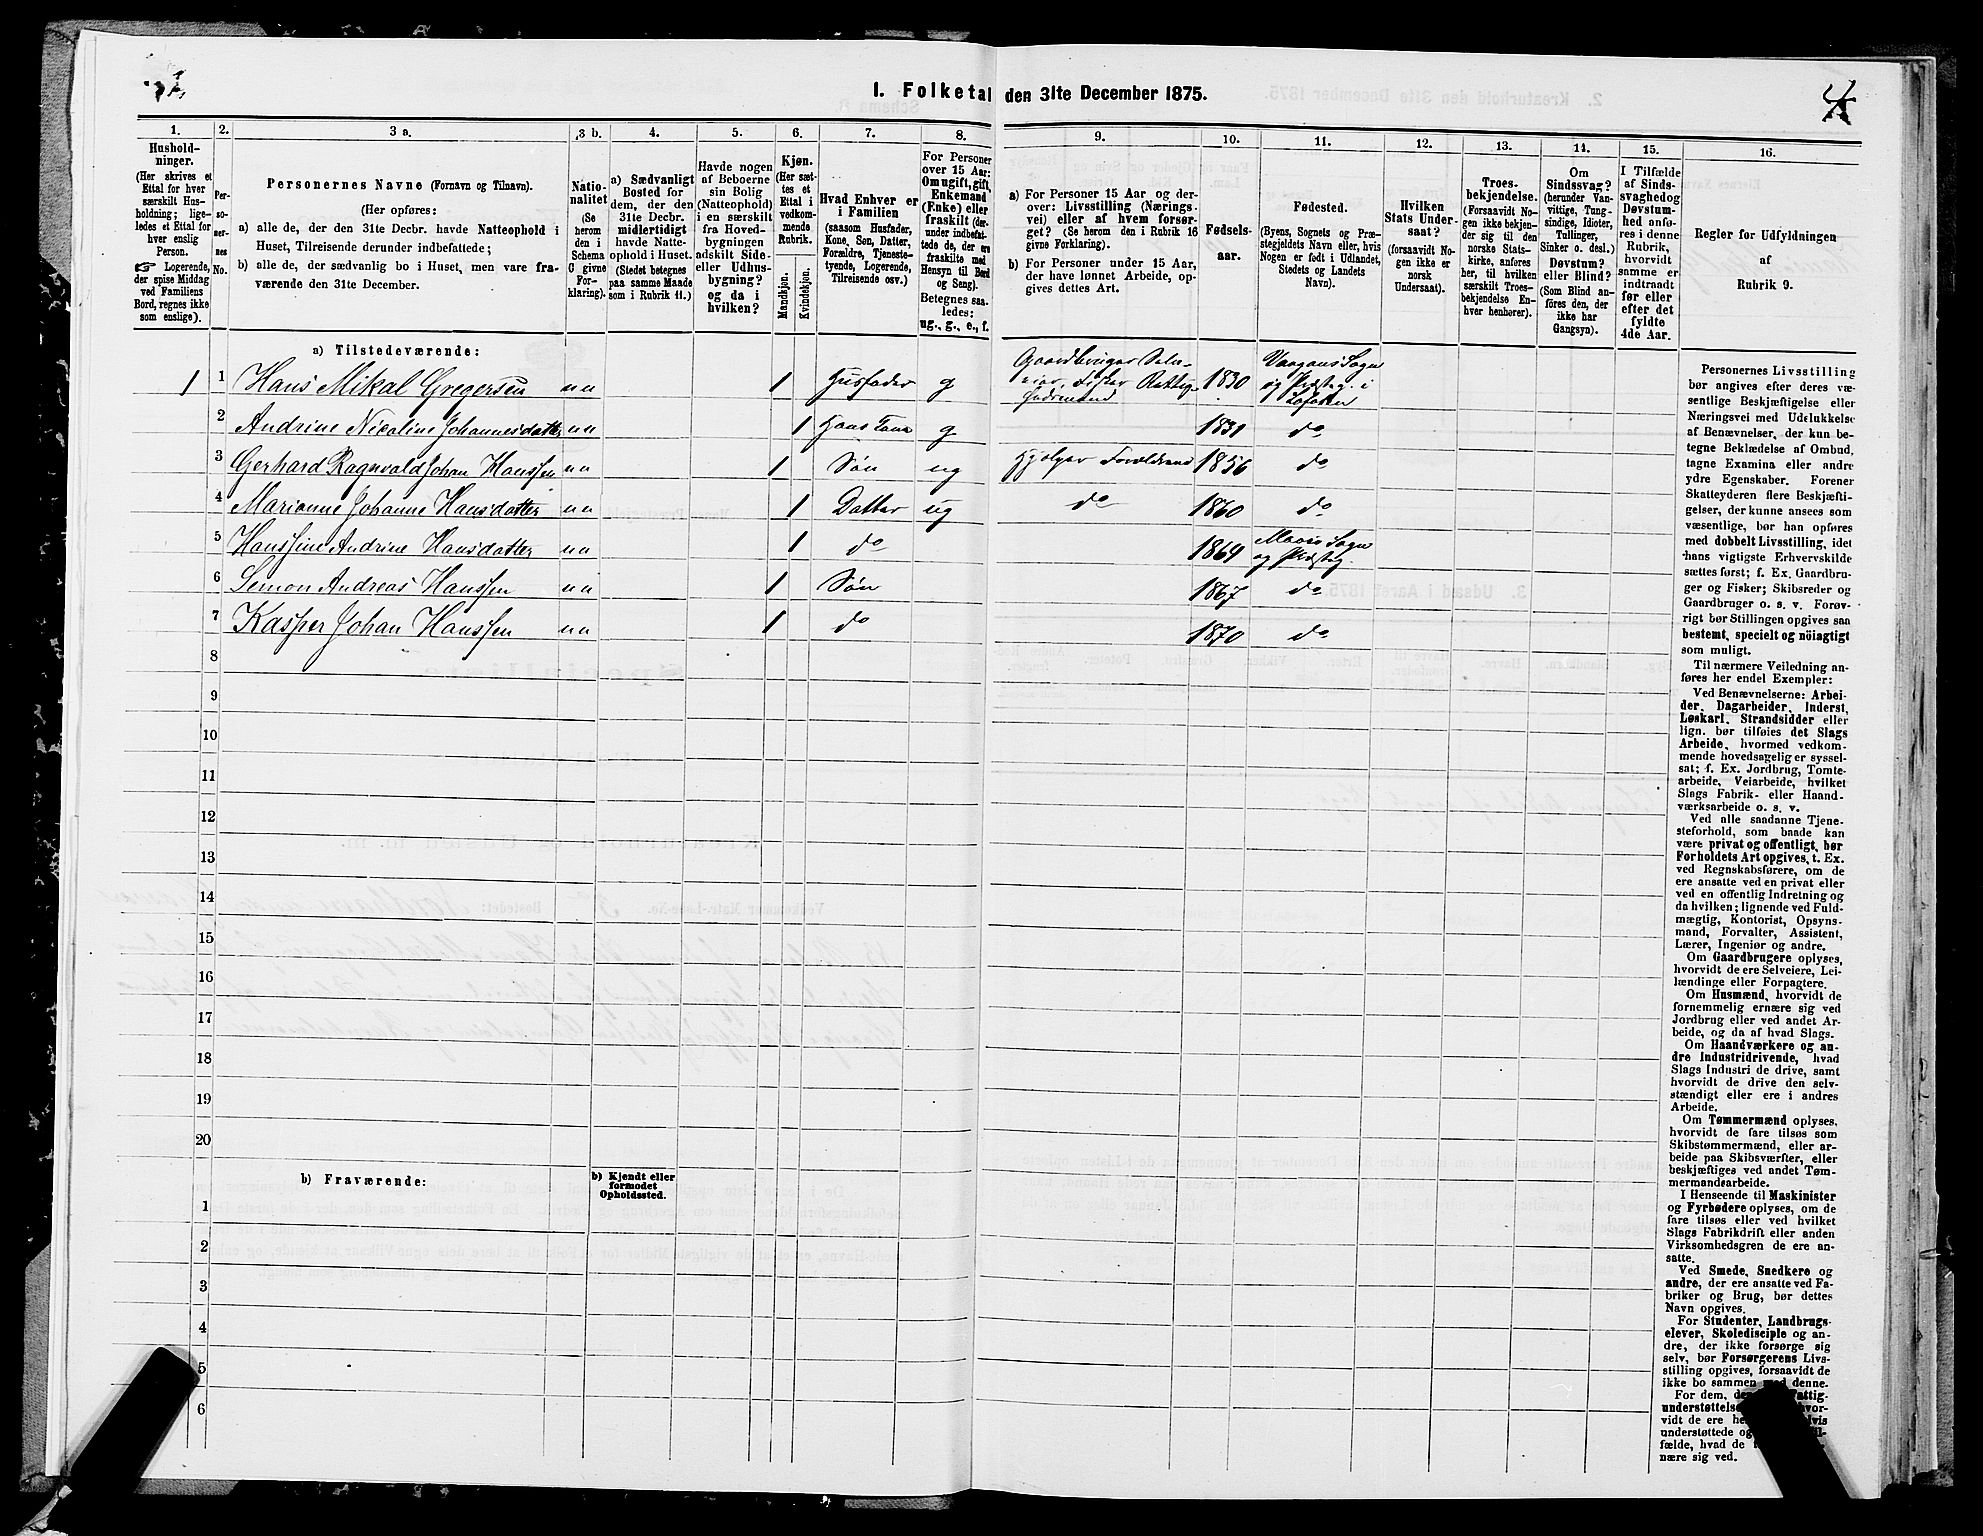 I. Folketal den 31te December 1875.
1.
Hushold-
ninger.
(Her skrives et
Ettal for hver
særskilt Hus-
holdning; lige-
ledes et Ettal for
hver enslig
Person.
☞ Logerende,
der spise Middag
ved Familiens
Bord, regnes ikke
som enslige).
2.
Per-
so-
ner-
nes
No.
3 a.
Personernes Navne (Fornavn og Tilnavn).
(Her opføres:
a) alle de, der den 31te Decbr. havde Natteophold i
Huset, Tilreisende derunder indbefattede;
b) alle de, der sædvanlig bo i Huset, men vare fra-
værende den 31te December.
3 b.
Natio-
nalitet
(Se
herom
den i
Schema
C givne
For-
klaring).
4.
a) Sædvanligt
Bosted for
dem, der den
31te Decbr.
midlertidigt
havde Natte-
ophold i Huset.
(Stedet betegnes
paa samme Maade
som i Rubrik 11.)
5.
Havde nogen
af Beboerne
sin Bolig
(Natteophold)
i en særskilt
fra Hoved-
bygningen
adskilt Side-
eller Udhus-
bygning?
og da i
hvilken?
6.
Kjøn.
(Her sæt-
tes et
Ettal i
vedkom-
mende
Rubrik.
Mandkjøn.
Kvindekjøn.
7.
Hvad Enhver er
i Familien
(saasom Husfader,
Kone, Søn, Datter,
Forældre, Tjeneste-
tyende, Logerende,
Tilreisende osv.)
8.
For Personer
over 15 Aar:
Om ugift, gift,
Enkemand
(Enke) eller
fraskilt (der-
under indbefat-
tede de, der ere
fraskilte med
Hensyn til Bord
og Seng).
Betegnes saa-
ledes:
ug., g., e., f.
9.
a) For Personer 15 Aar og der-
over: Livsstilling (Nærings-
vei) eller af hvem forsør-
get? (Se herom den i Rubrik 16
givne Forklaring).
b) For Personer under 15 Aar,
der have lønnet Arbeide, op-
gives dettes Art.
10.
Fødsels-
aar.
11.
Fødested.
(Byens, Sognets og Præ-
stegjeldets Navn eller, hvis
Nogen er født i Udlandet,
Stedets og Landets
Navn).
12.
Hvilken
Stats Under-
saat?
(forsaavidt No-
gen ikke er
norsk
Undersaat).
13.
Troes-
bekjendelse.
(Forsaavidt No-
gen ikke bekjen-
der sig til den
norske Stats-
kirke, anføres
her, til hvilken
særskilt Troes-
bekjendelse En-
hver henhører).
14.
Om
Sindssvag?
(herunder Van-
vittige, Tung-
sindige, Idioter,
Tullinger,
Sinker o. desl.)
Døvstum?
eller Blind?
(Som Blind an-
føres den, der
ikke har
Gangsyn).
15.
I Tilfælde
af Sinds-
svaghed og
Døvstum-
hed anfø-
res i denne
Rubrik,
hvorvidt
samme er
indtraadt
før eller
efter det
fyldte
4de Aar.
16.
Regler for Udfyldningen
af
Rubrik 9.
a) Tilstedeværende:
1 1 Hans Mikal Gregersen nn 1 Husfader g Gaardbruger Selv-
eier, Fisker 1830 Vaagans Sogn
og Præsteg. i
Lofoten
2 Andrine Nicoline Johannesdatter nn 1 Hans Kone g 1831 do
3 Gerhard Ragnvald Johan Hanssen nn 1 Søn ug Hjelper Forældrene 1856 do
4 Marianne Johanne Hansdatter nn 1 Datter ug do 1860 do
5 Hanssine Andrine Hansdatter nn 1 do 1864 Sogn
og Præsteg.
6 Simon Andreas Hanssen nn 1 Søn 1867 do
7 Kasper Johan Hanssen nn 1 do 1870 do
8
9
10
11
12
13
14
15
16
17
18
19
20
b) Fraværende:
b) Kjendt eller
formodet
Opholdssted.
1
2
3
4
5
6
Personernes Livsstilling
bør angives efter deres væ-
sentlige Beskjæftigelse eller
Næringsvei med Udelukkelse
af Benævnelser, der kun be-
tegne Beklædelse af Ombud,
tagne Examina eller andre
ydre Egenskaber. Forener
Skatteyderen flere Beskjæfti-
gelser, der kunne ansees som
væsentlige, bør han opføres
med dobbelt Livsstilling, idet
hans vigtigste Erhvervskilde
sættes først; f. Ex. Gaardbru-
ger og Fisker; Skibsreder og
Gaardbruger o. s. v. Forøv-
rigt bør Stillingen opgives saa
bestemt, specielt og nöiagtigt
som muligt.
Til nærmere Veiledning an-
føres her endel Exempler:
Ved Benævnelserne: Arbei-
der, Dagarbeider, Inderst,
Løskarl, Strandsidder eller
lign. bør tilføies det Slags
Arbeide, hvormed vedkom-
mende hovedsagelig er syssel-
sat; f. Ex. Jordbrug, Tomte-
arbeide, Veiarbeide, hvilket
Slags Fabrik- eller Haand-
værksarbeide o. s. v.
Ved alle saadanne Tjene-
steforhold, som baade kan
være privat og offentligt, bør
Forholdets Art opgives, t. Ex.
ved Regnskabsførere, om de
ere ansatte ved en privat eller
ved en offentlig Indretning og
da hvilken; lignende ved Fuld-
mægtig, Kontorist, Opsyns-
mand, Forvalter, Assistent,
Lærer, Ingeniør og andre.
Om Gaardbrugere oplyses,
hvorvidt de ere Selveiere, Lei-
lændinge eller Forpagtere.
Om Husmænd, hvorvidt de
fornemmelig ernære sig ved
Jordbrug eller ved andet Ar-
beide, og da af hvad Slags.
Om Haandværkere og an-
dre Industridrivende, hvad
Slags Industri de drive, samt
hvorvidt de drive den selv-
stændigt eller ere i andres
Arbeide.
Om Tømmermænd oplyses,
hvorvidt de fare tilsøs som
Skibstømmermænd, eller ar-
beide paa Skibsværfter, eller
beskjæftiges ved andet Tøm-
mermandsarbeide.
I Henseende til Maskinister
og Fyrbødere oplyses, om de
fare tilsøs eller ved hvilket
Slags Fabrikdrift eller anden
Virksomhedsgren de ere an-
satte.
Ved Smede, Snedkere og
andre, der ere ansatte ved Fa-
briker og Brug, bør dettes
Navn opgives.
For Studenter, Landbrugs-
elever, Skoledisciple og an-
dre, der ikke forsørge sig
selv, bør Forsørgerens Livs-
stilling opgives, forsaavidt de
ikke bo sammen med denne.
For dem,
understøttelse
vidt de ere
understøttede
fælde, hvad de
nære sig ved.